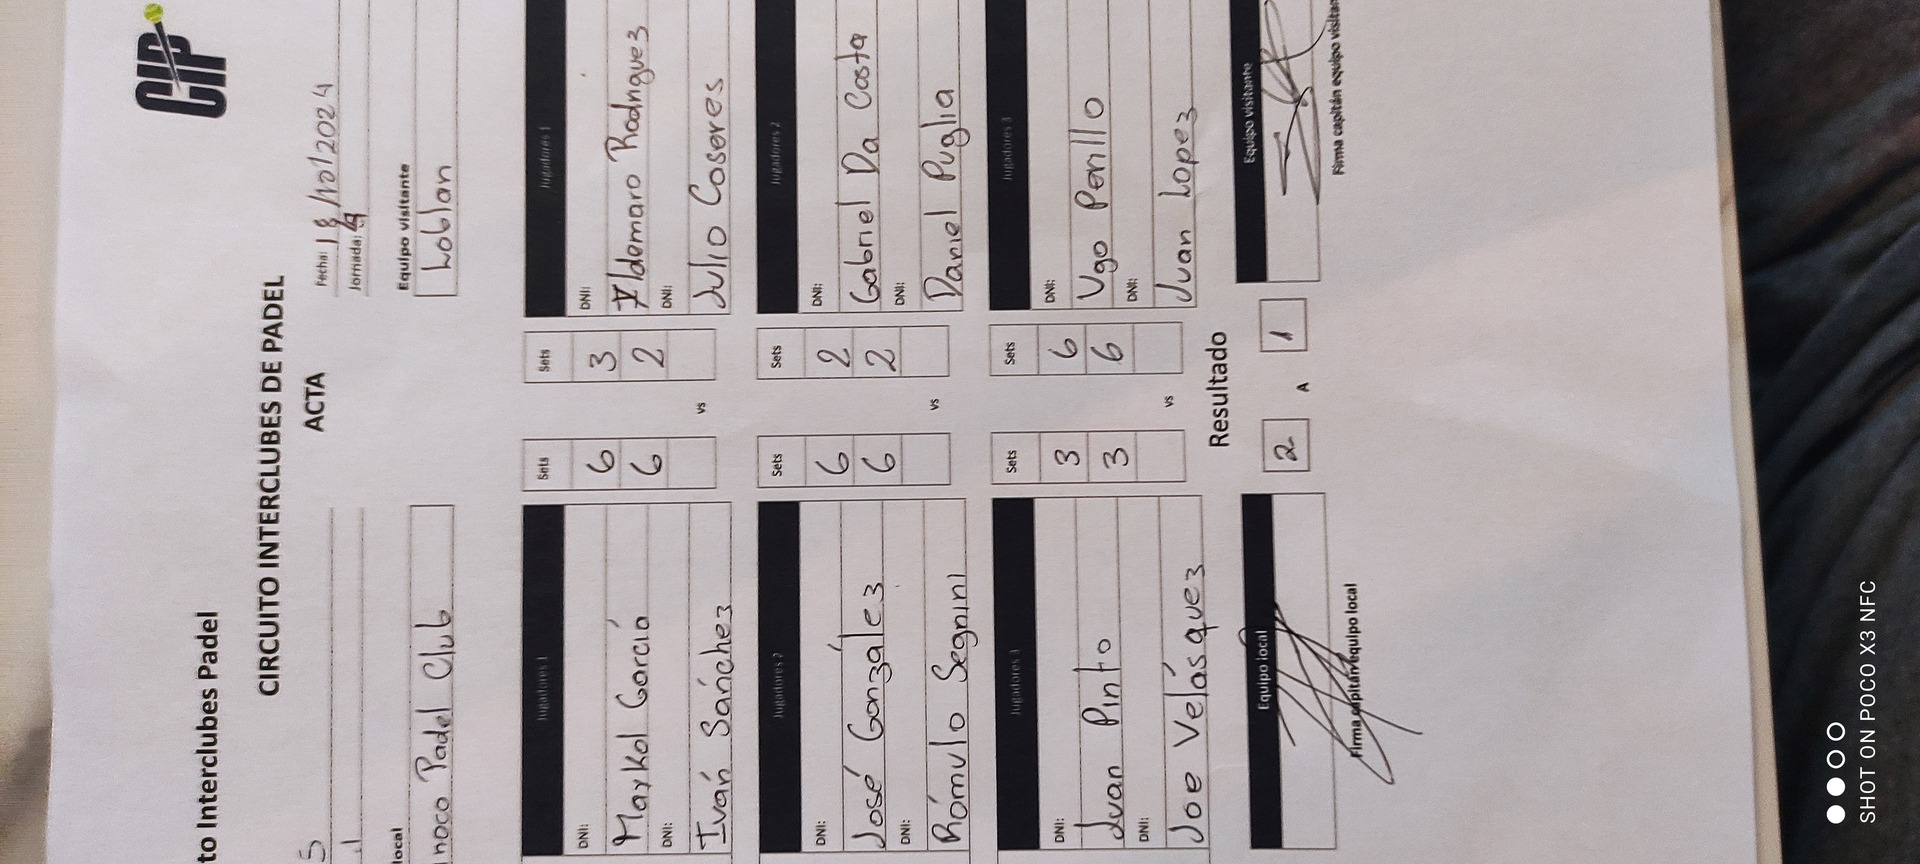 CIP
to Interclubes Padel
CIRCUITO INTERCLUBES DE PADEL
ACTA
Fecha: 18/10/2024
Jornada:
local
Equipo visitante
inoco Padel Club
Loblan
Jugadores 1
Sets
Sets
Jugadores 1
DNI:
6
3
DNI:
Maykol García
6
2
Aldemaro Rodriguez
DNI:
DNI:
Iván Sánchez
vs
Julio Caseres
Jugadores 2
Sets
Sets
Jugadores 2
DNI:
6
2
DNI:
José González
6
2
Gabriel Da Costa
DNI:
DNI:
Rómulo Segnini
vs
Daniel Puglia
Jugadores 3
Sets
Sets
Jugadores 3
DNI:
3
6
DNI:
Juan Pinto
3
6
Ugo Perillo
DNI:
DNI:
Joe Velásquez
vs
Juan Lopez
Resultado
Equipo local
2
A
1
Equipo visitante
Firma capitán equipo local
Firma capitán equipo visitan
SHOT ON POCO X3 NFC